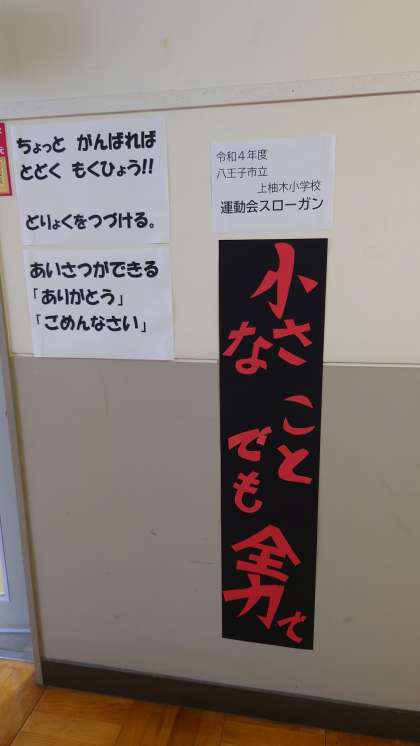 ちょっと がんばれば
とどく もくひょう!!
どりょくをつづける。
あいさつができる
「ありがとう」
「ごめんなさい」
令和4年度
八王子市立
上柚木小学校
運動会スローガン
小さ
な
こと
でも
全力で